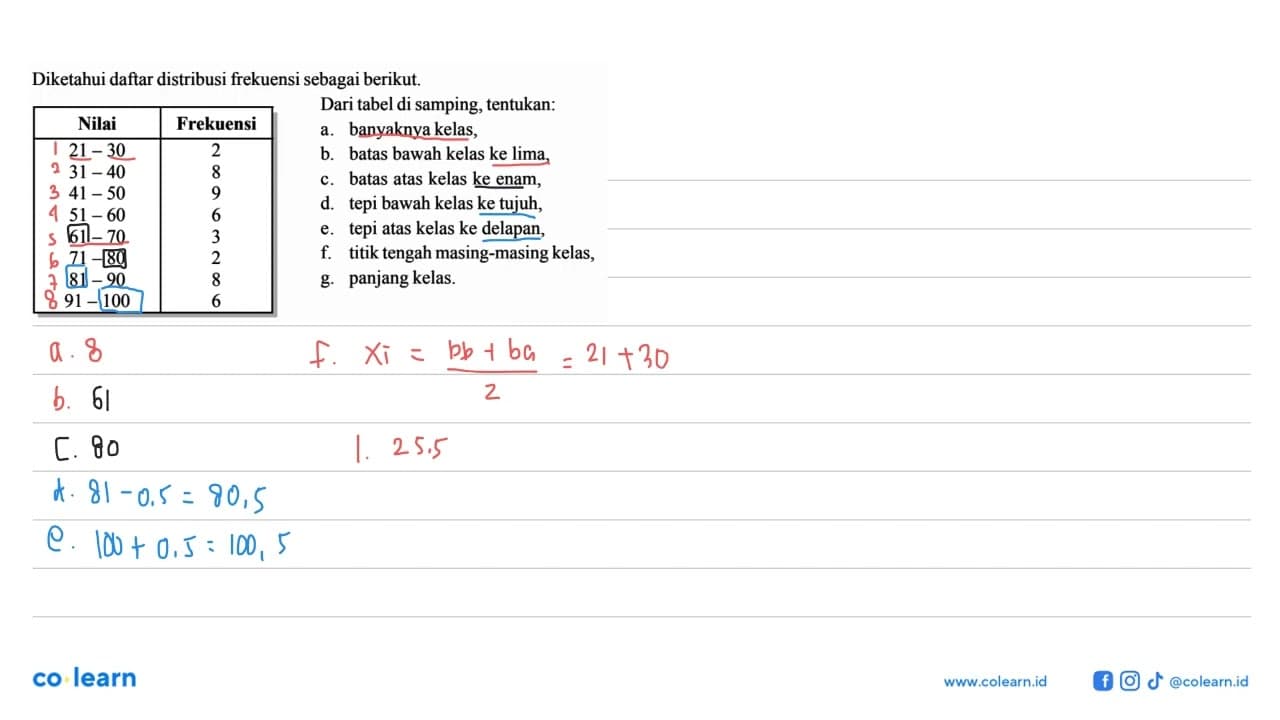 Diketahui daftar distribusi frekuensi sebagai berikut.
Nilai Frekuensi
1 21 – 30 2
2 31 – 40 8
3 41 – 50 9
4 51 – 60 6
5 61 – 70 3
6 71 – 80 2
7 81 – 90 8
8 91 – 100 6
Dari tabel di samping, tentukan:
a. banyaknya kelas,
b. batas bawah kelas ke lima,
c. batas atas kelas ke enam,
d. tepi bawah kelas ke tujuh,
e. tepi atas kelas ke delapan,
f. titik tengah masing-masing kelas,
g. panjang kelas.
a. 8
b. 61
c. 80
d. 81 - 0.5 = 80,5
e. 100 + 0.5 = 100,5
f. xi = bb + ba = 21 + 30
2
1. 25.5
co learn
www.colearn.id
@colearn.id